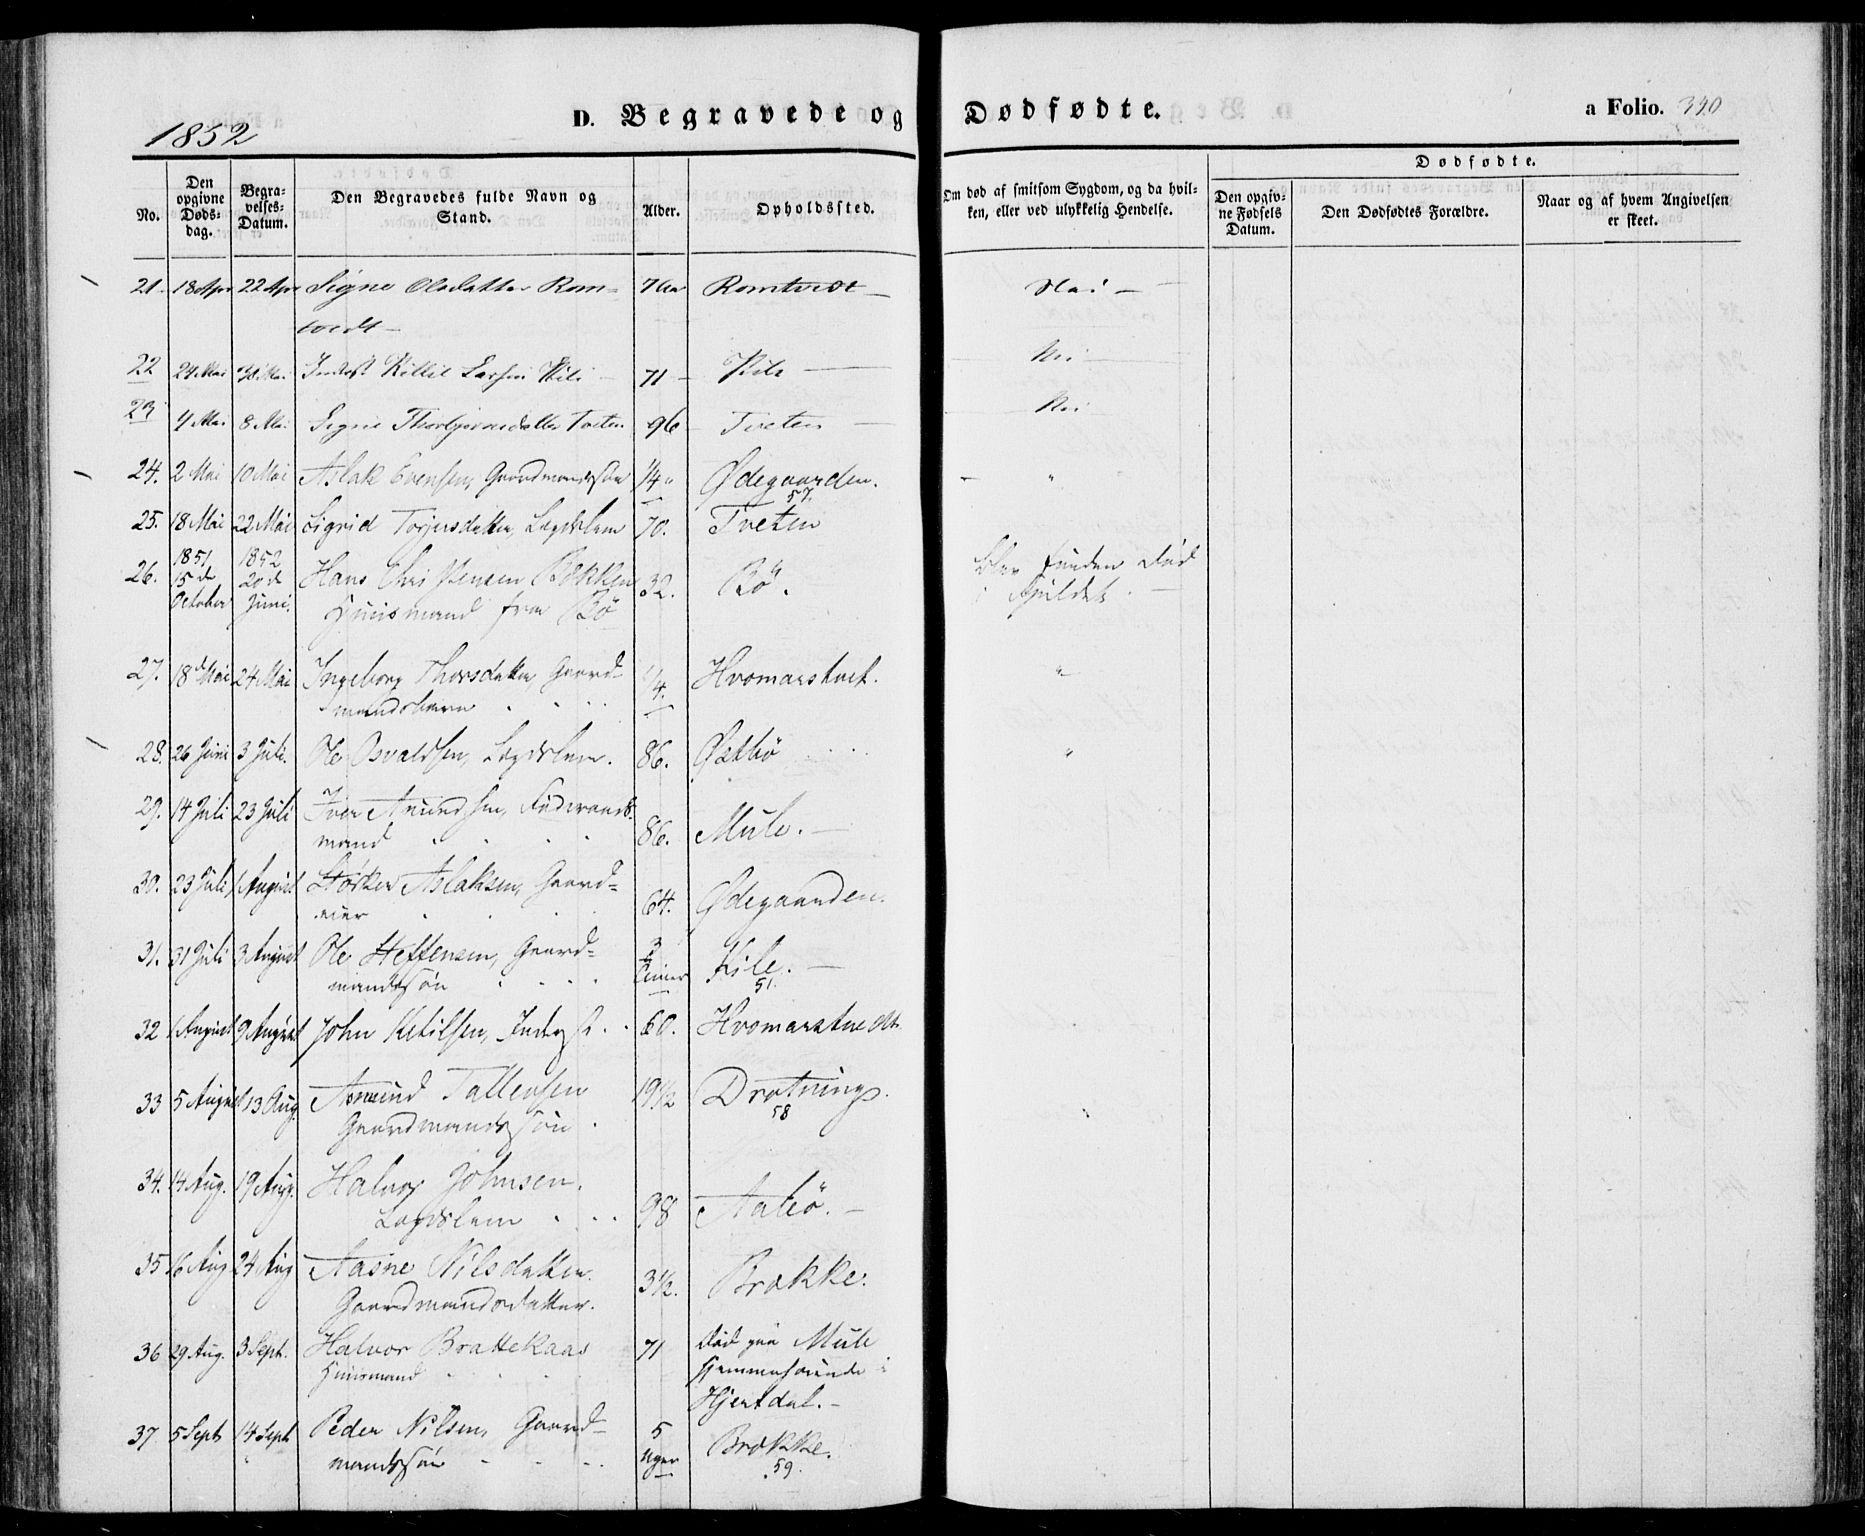 1852
D. Begravede og Dødfødte.
a Folio. 340
No.
Den opgivne Døds-dag.
Begra-velses-Datum.
Den Begravedes fulde Navn og Stand.
Alder.
Opholdssted.
Om død af smitsom Sygdom, og da hvil-
ken, eller ved ulykkelig Hendelse.
Dødfødte.
Den opgiv-
ne Fødsels
Datum.
Den Dødfødtes Forældre.
Naar og af hvem Angivelsen
er skeet.
21 18 Apr 22 Apr Signe Olsdatter Rom= Romtvedt
tvedt
22 24 Mai Kittil Larsen Kili 71 Kile Nei
23 4 Mai 8 Mai Signe Thorbjørnsdatter Tveten 96 Tveten Nei
24. 2 Mai 10 Mai Aslak Evensen, Gaardmandssøn 1/4 Ødegaarden. "
57.
25. 18 Mai 22 Mai Sigrid Torjusdatter, Lægdslem 70. Tveten
26. 1851 15de October 1852 20de Juni. Hans Christensen Bækken 32. Bö. blev funden död
Huusmand fra Bö i Fjeldet.
27. 18de Mai 24 Mai Ingeborg Thorsdatter, Gaard= 1/4. Hvomarstvet. "
mandsbarn
28. 26 Juni 3 Juli. Ole Osvaldsen, Lægdslem. 86. Østbö "
29. 14 Juli 23 Juli Iver Amundsen, Föderaads=
mand 86. Mule.
30. 23 Juli 1 August Störker Aslaksen, Gaard=
eier 64. Ødegaarden.
31. 31 Juli 3 August Ole Steffensen, Gaard= 3 Timer Kile.
mandssön 51.
32 1 August 9 August John Ketilsen, Inderst 60. Hvomarstvedt
33 5 August 13 Aug. Amund Tallevsen 19 1/2 Drotnings.
Gaardmandssön. 58
34. 14 Aug. 19 Aug. Halvor Johnsen.
Lægdslem 98 Aabö.
35 16 Aug 24 Aug Aasne Nilsdatter. 3 1/2. Brække.
Gaardmandsdatter.
36 29 Aug. 3 Sept. Halvor Brattekaas 71 död paa Mule
Huusmand hjemmehörende i
Hjertdal.
37 5 Sept 14 Sept Peder Nilsen, Gaard= 5 Uger Brække.
mandssön 59.